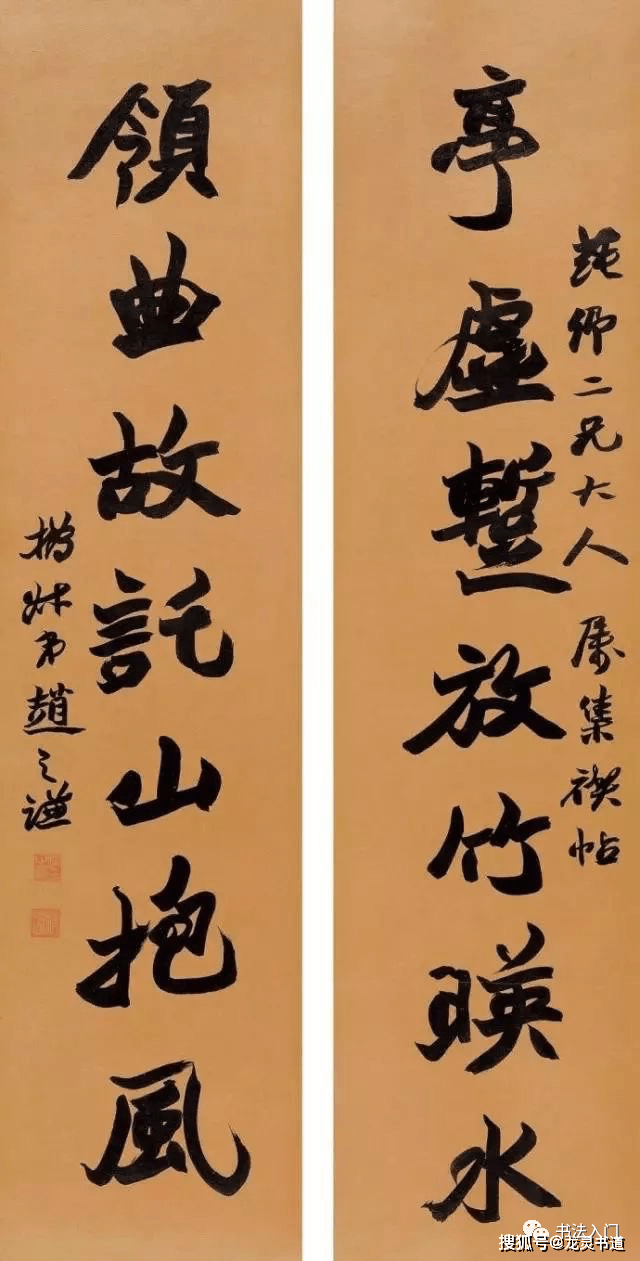 亭虛蹔放竹暎水
卿二兄大人 属集禊帖
領曲故託山抱風
撝叔弟趙之謙
书法入门
搜狐号@龙灵书道